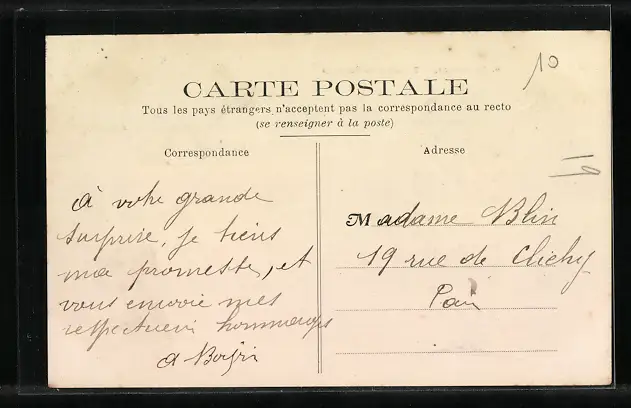 10
CARTE POSTALE
Tous les pays étrangers n'acceptent pas la correspondance au recto
(se renseigner à la poste)
Correspondance
Adresse
à votre grande
surprise, je tiens
ma promesse, et
vous envoie mes
respectueux hommages
Madame Blin
19 rue de Clichy
Paris